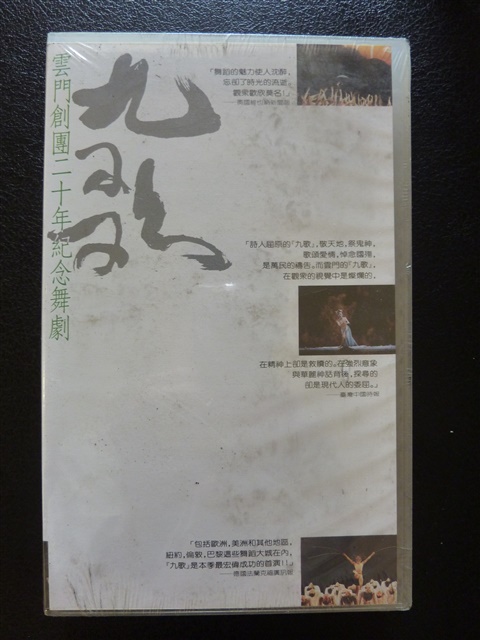 九歌
雲門創團二十年紀念舞劇
「舞蹈的魅力使人沈醉,
忘卻了時光的流逝。
觀衆歡欣莫名!」
「詩人屈原的『九歌』,敬天地,祭鬼神,
歌頌愛情,悼念國殤,
是萬民的禱告。而雲門的『九歌』,
在觀衆的視覺中是燦爛的,
在精神上卻是救贖的。在強烈意象
與華麗神話背後,探尋的
卻是現代人的委屈。」
——臺灣中國時報
「包括歐洲,美洲和其他地區,
紐約,倫敦,巴黎這些舞蹈大城在內,
『九歌』是本季最宏偉成功的首演!!」
——德國法蘭克福廣訊報